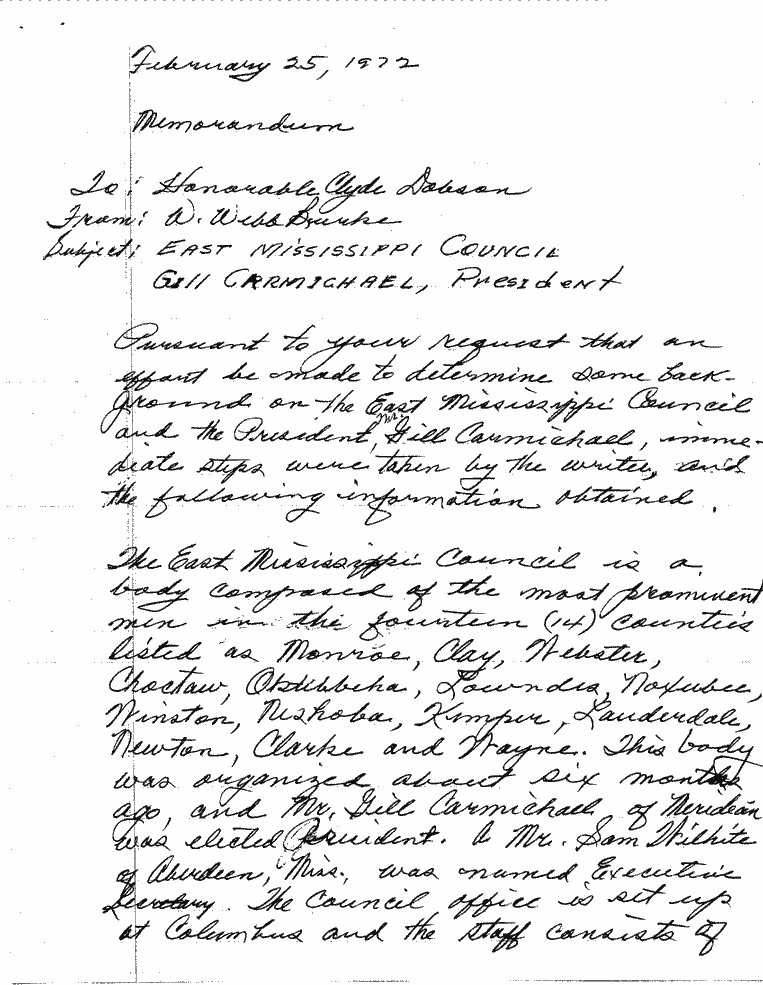 February 25, 1972
Memorandum
To: Honorable Clyde Dobson
From: W. Webb Burke
Subject: EAST MISSISSIPPI COUNCIL
Gill CARMICHAEL, President
Pursuant to your request that an
effort be made to determine some back-
ground on the East Mississippi Council
and the President, Mr. Gill Carmichael, imme-
diate steps were taken by the writer, and
the following information obtained.
The East Mississippi Council is a
body composed of the most prominent
men in the fourteen (14) counties
listed as Monroe, Clay, Webster,
Choctaw, Oktibbeha, Lowndes, Noxubee,
Winston, Neshoba, Kemper, Lauderdale,
Newton, Clarke and Wayne. This body
was organized about six months
ago, and Mr. Gill Carmichael of Meridian
was elected President. A Mr. Sam Wilhite
of Aberdeen, Miss., was named Executive
Secretary. The Council office is set up
at Columbus and the staff consists of